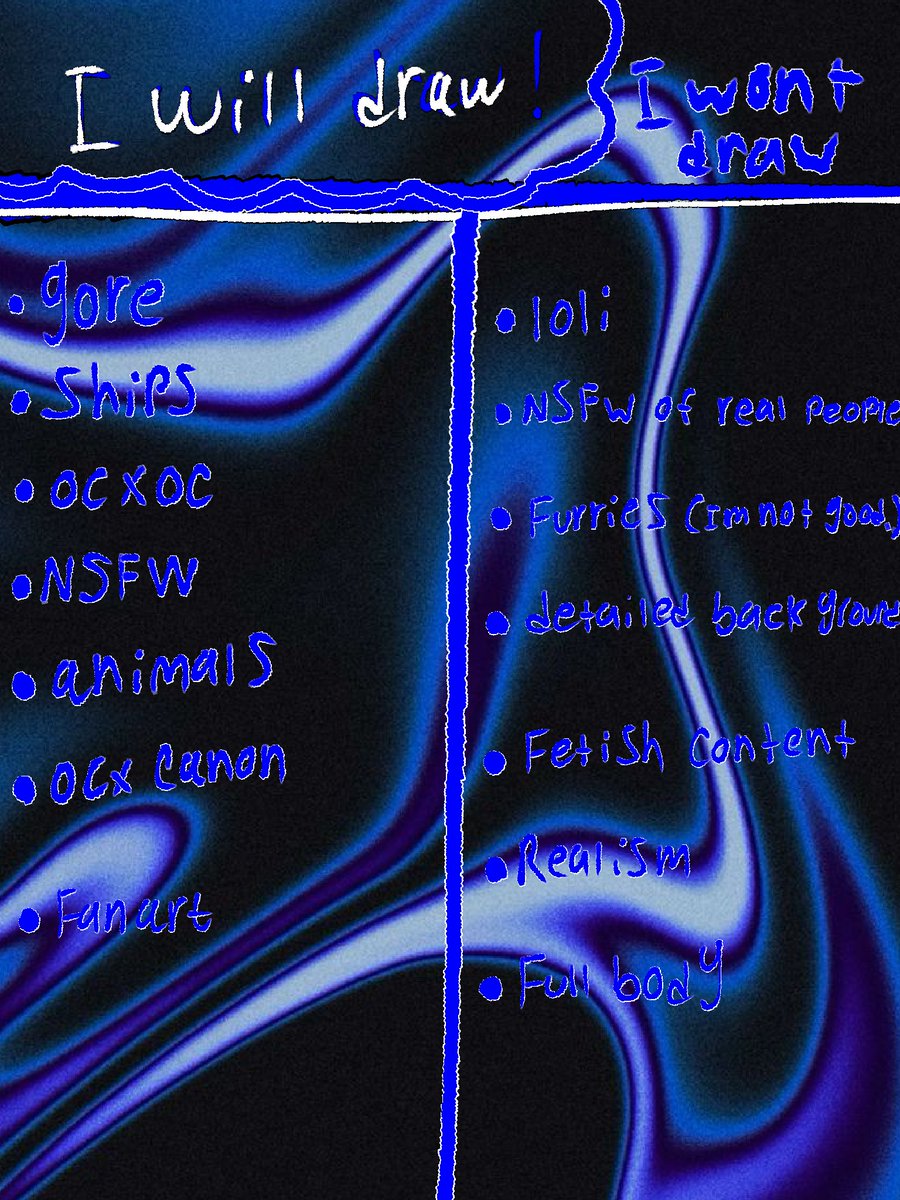 I will draw!
I wont
draw
• gore
• Ships
• OC x OC
• NSFW
• animals
• OCx Canon
• Fanart
• loli
• NSFW of real people
• Furries (Im not good.)
• detailed background
• Fetish Content
• Realism
• Full body